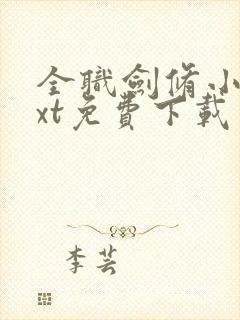 全職劍脩小
xt免費下載
李芸